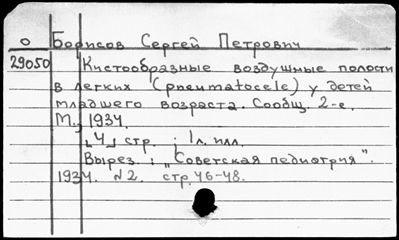 о Борисов Сергей Петрович
29050 Кистообразные воздушные полости
в легких (pneumatocele) у детей
младшего возраста. Сообщ. 2-е.
М., 1934.
"4" стр. ; 1 л. илл.
Вырез. : „Советская педиатрия".
1934. №2. стр. 46-48.